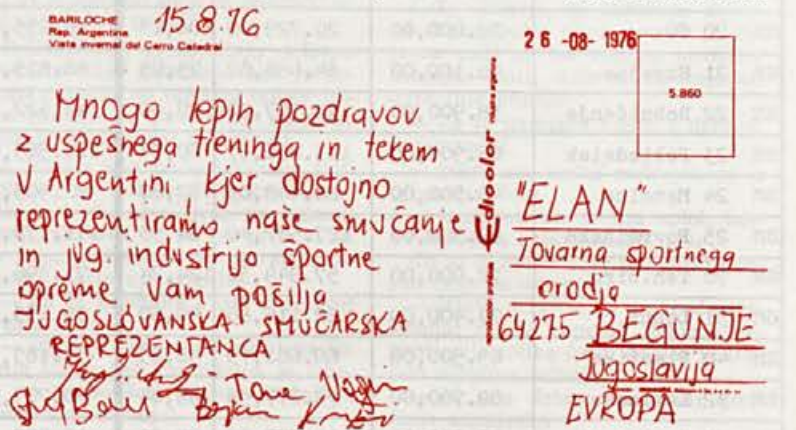 BARILOCHE
Rep. Argentina
Vista invernal del Cerro Catedral
15.8.76
Mnogo lepih pozdravov
z uspešnega treninga in tekem
v Argentini, kjer dostojno
reprezentiramo naše smučanje
in jug. industrijo športne
opreme Vam pošilja
JUGOSLOVANSKA SMUČARSKA
REPREZENTANCA
Tone Vogrin
Bojan Križaj
Edicolor
26 -08- 1976
5.860
"ELAN"
Tovarna športnega
orodja
64275 BEGUNJE
Jugoslavija
EVROPA